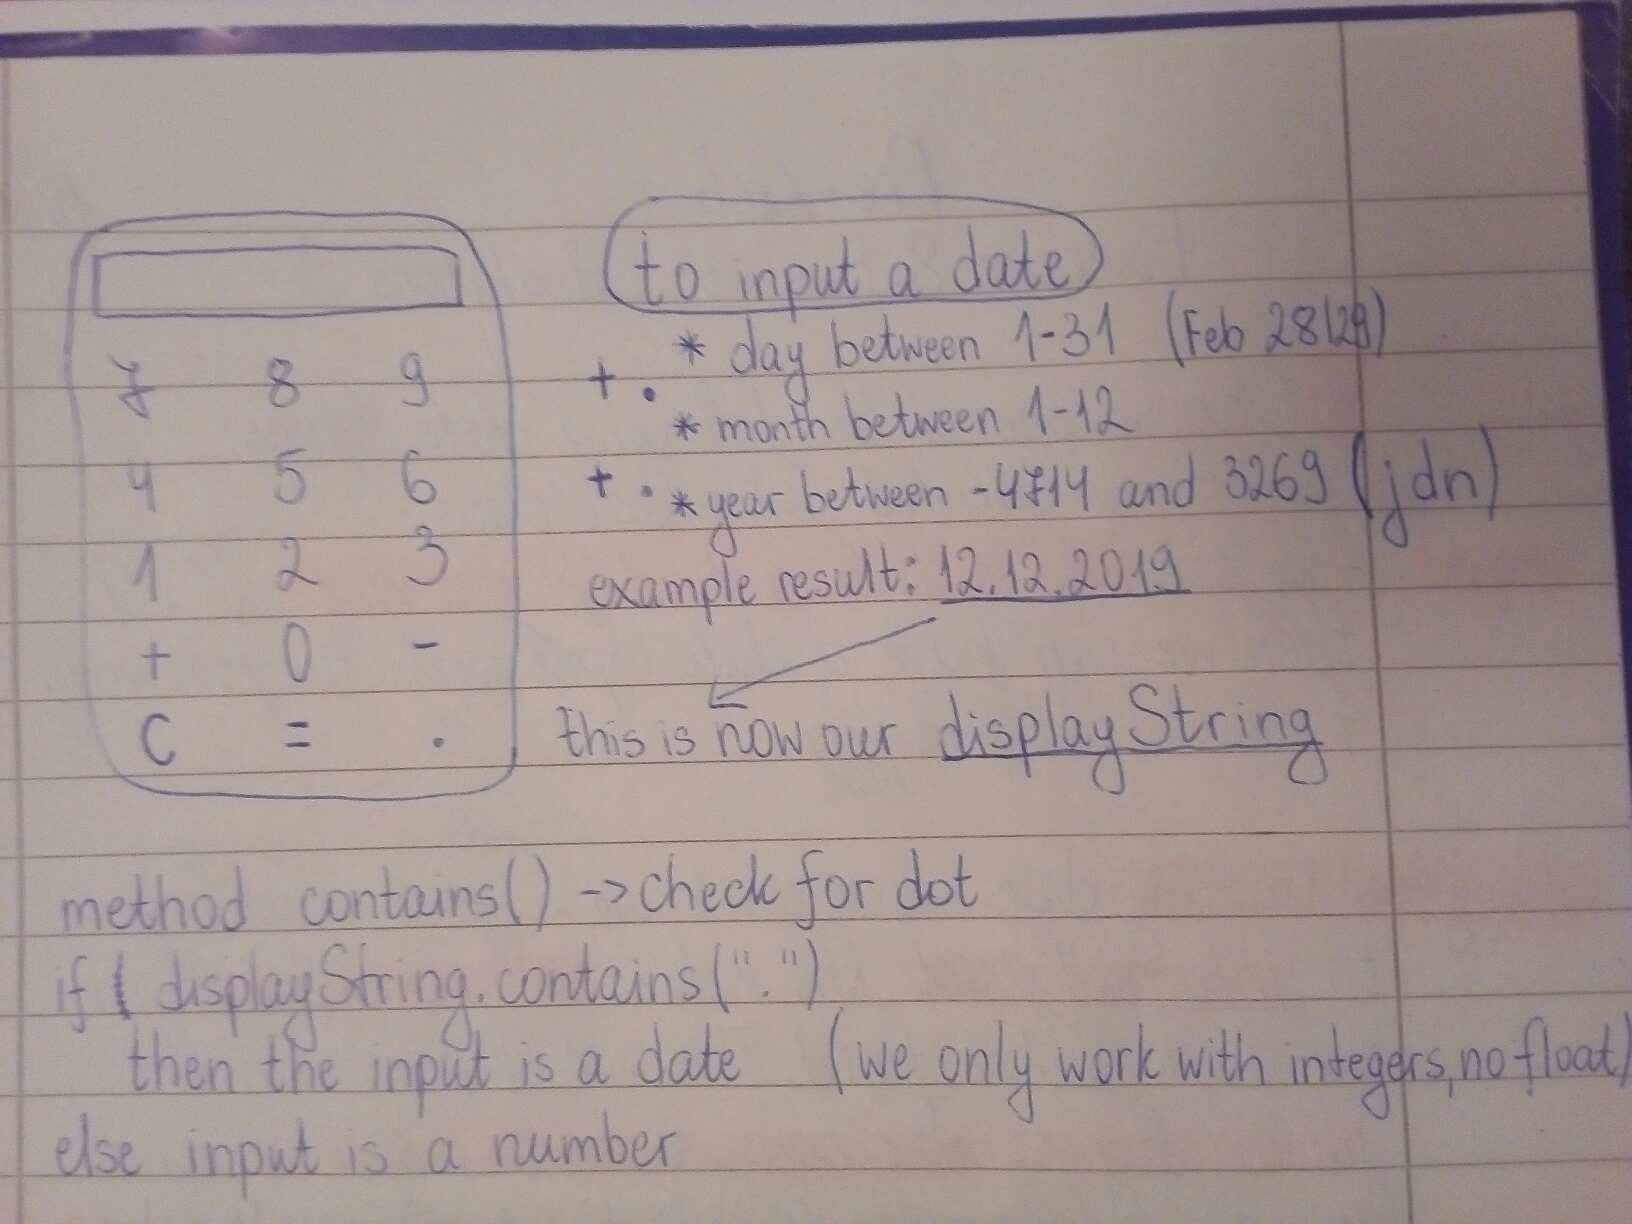 to input a date
* day between 1-31 (Feb 28/29)
+ .
* month between 1-12
+ . * year between -4714 and 3269 (jdn)
example result: 12.12.2019
this is now our displayString
7 8 9
4 5 6
1 2 3
+ 0 -
C = .
method contains() -> check for dot
if displayString.contains(".")
then the input is a date (we only work with integers, no float)
else input is a number